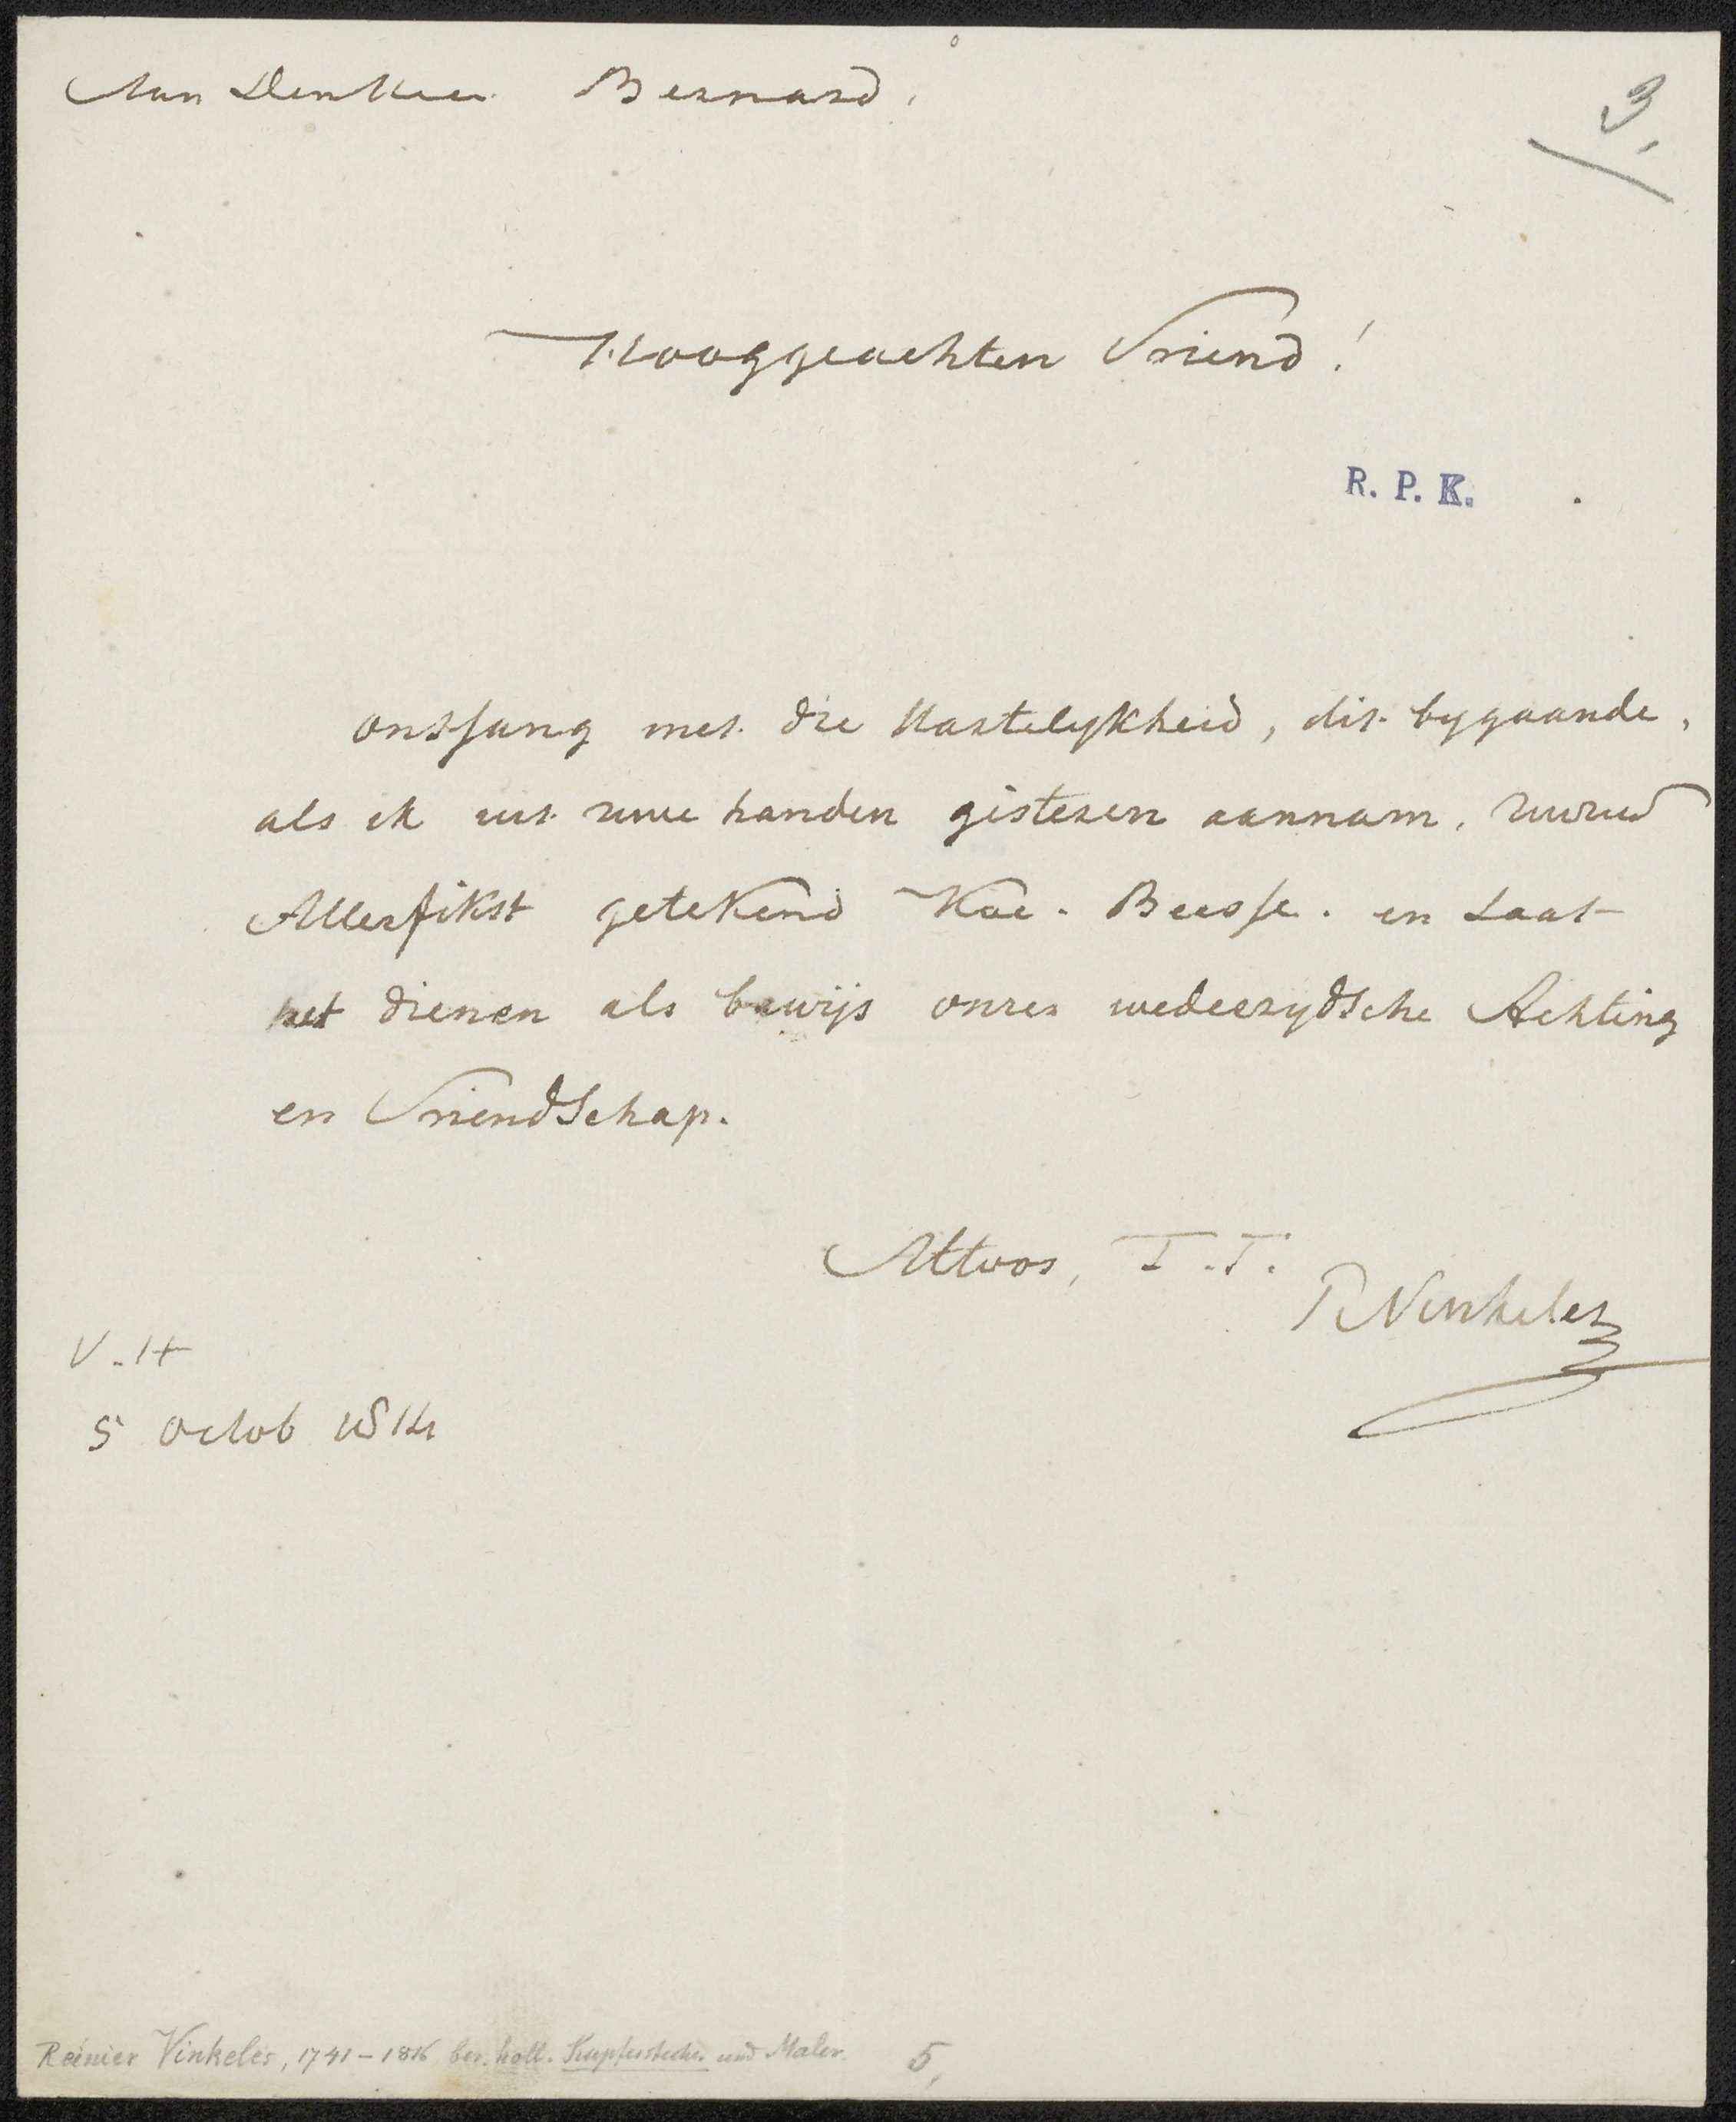 Aan den Heer Bernard.
3,
Hooggeachten Vriend!
R. P. K.
ontfang met die Hartelykheid, dit bygaande,
als ik uit uwe handen gisteren aannam,
Allerfikst getekend Koe. Beesje. en Laat
het dienen als bewijs onzer wederzydsche Achting
en Vriendschap.
Altoos, T. T.
R Vinkeles
V. H
5 octob 1814
Reinier Vinkeles, 1741-1816 ber. holl. Kupferstecher und Maler. 5,